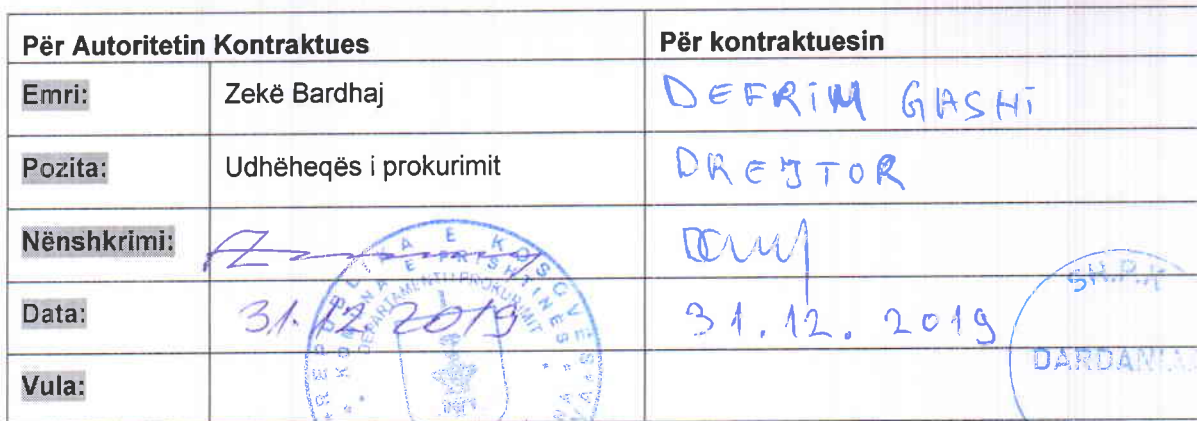 Për Autoritetin Kontraktues Për kontraktuesin
Emri: Zekë Bardhaj DEFRIM GASHI
Pozita: Udhëheqës i prokurimit DREJTOR
Nënshkrimi:
Data: 31.12.2019 31.12.2019
Vula:
REPUBLIKA E KOSOVËS
KOMUNA E PRISHTINËS
DEPARTAMENTI I PROKURIMIT
SH.P.K
DARDANIA